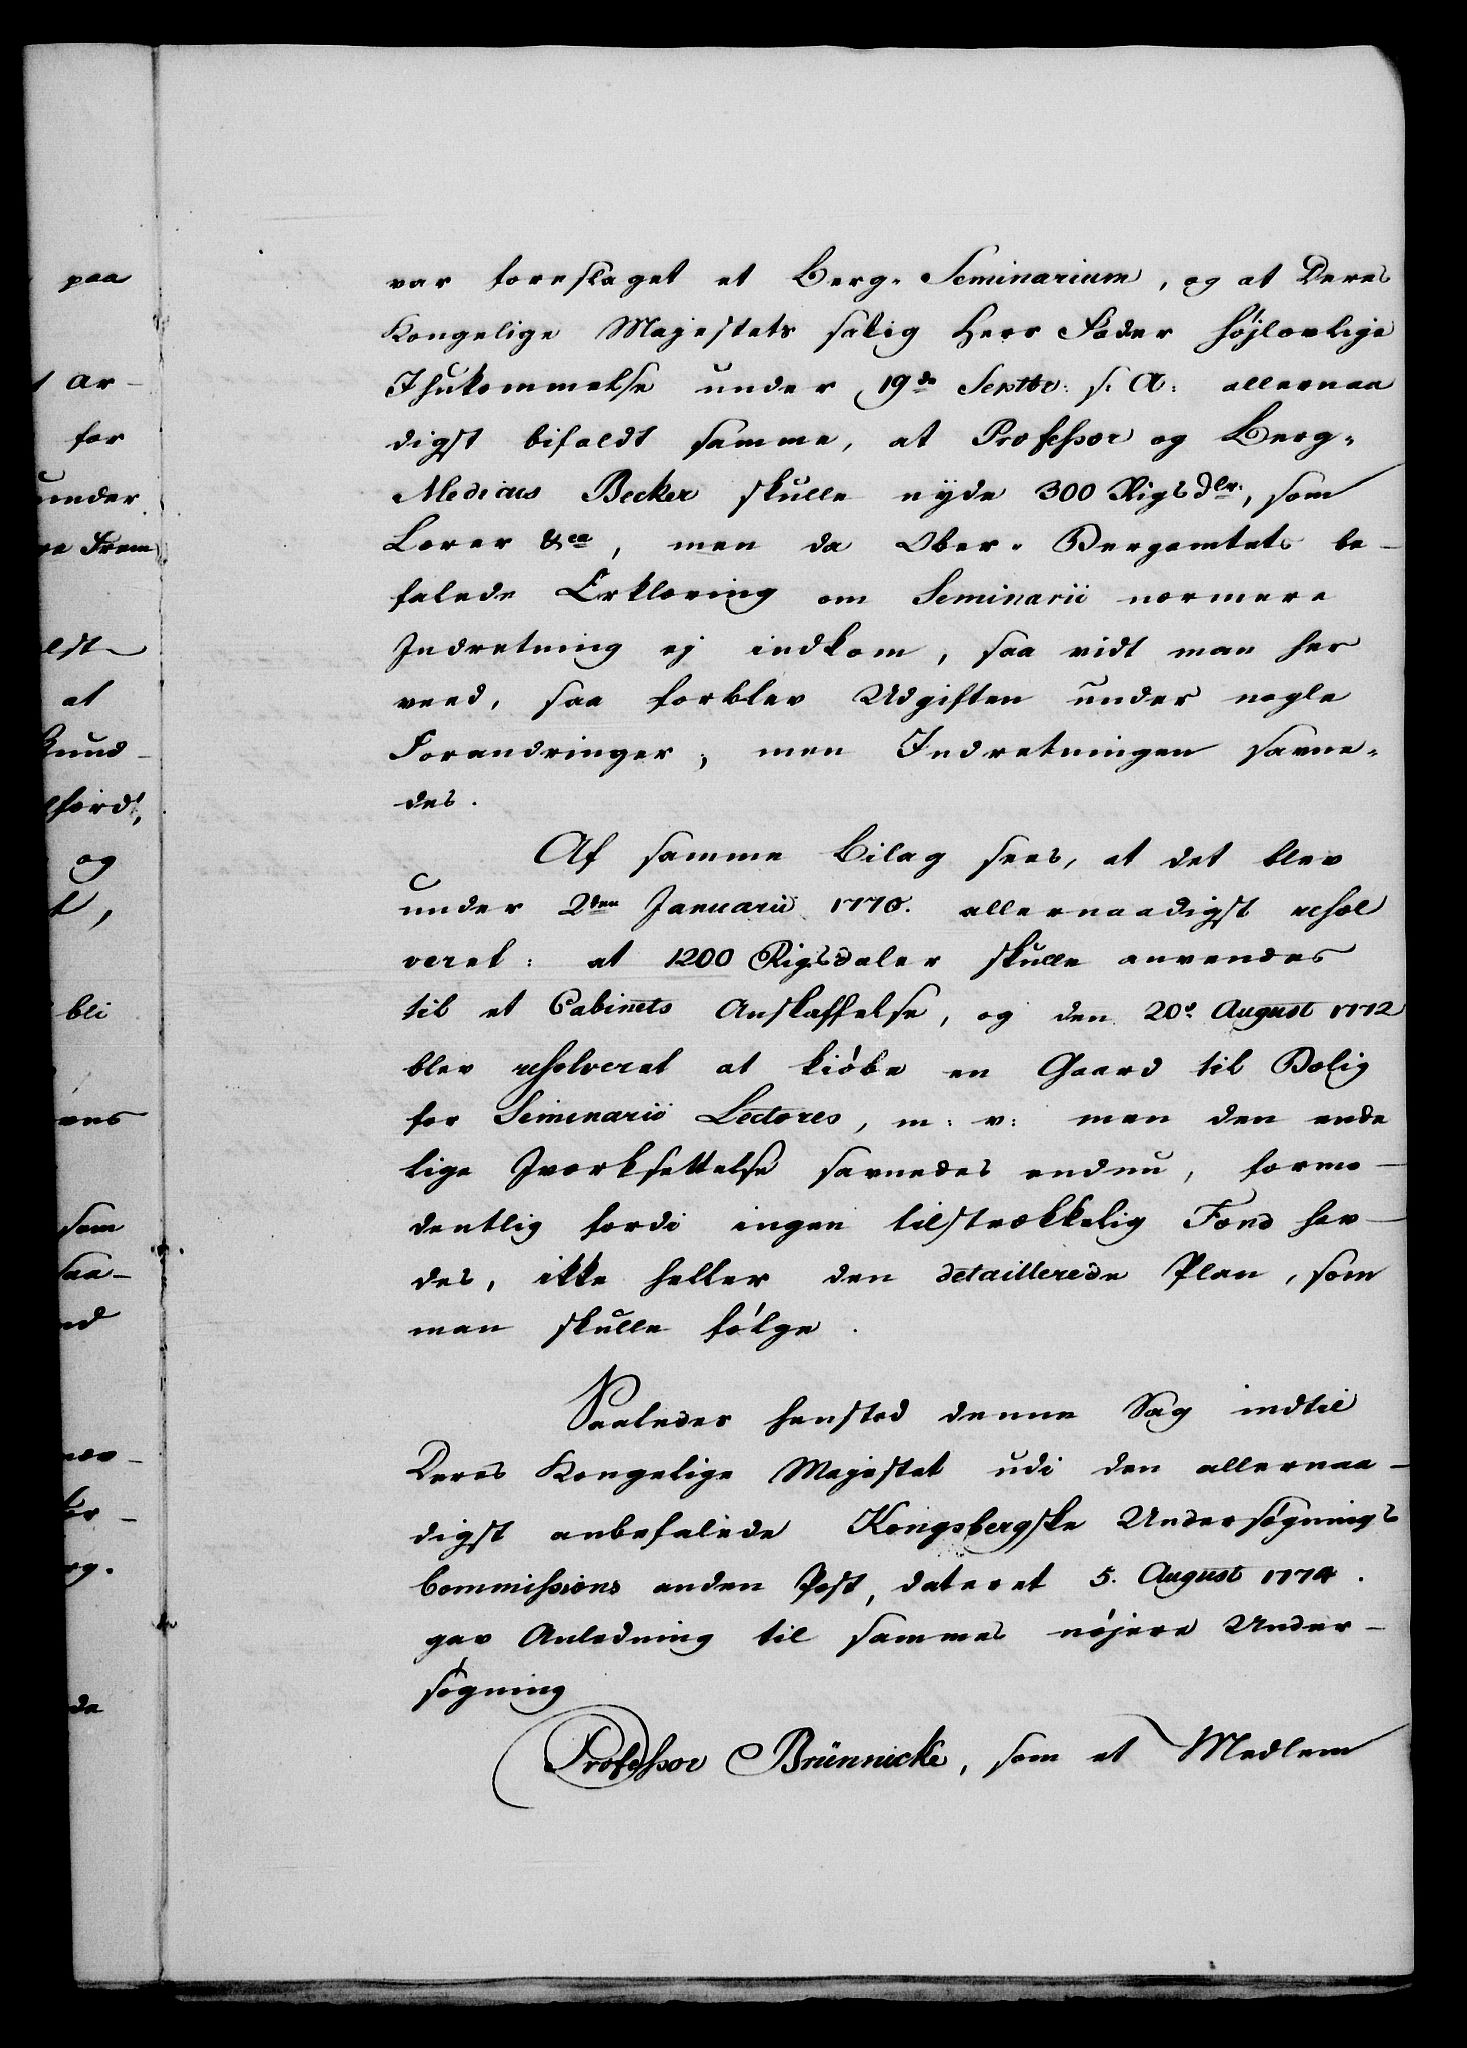 paa
ar-
for
under
re Frem
ldt
at
Kund-
og
bli
ens
som
saa-
nd
da
var foreslaget et Berg- Seminarium, og at Deres
Kongelige Majestets salig Herr Fader Højlovlige
Ihukommelse under 19de Septbr: s. A: allernaa
digst bifaldt samme, at Professor og Berg-
Medicus Becker skulle nyde 300 Rigsdlr:, som
Lærer &ca, men da Ober- Bergamtets be-
falede Erklæring om Seminarii nærmere
Indretning ej indkom, saa vidt man her
veed, saa forblev Udgiften under nogle
Forandringer, men Indretningen savne-
des.
Af samme Bilag sees, at det blev
under 2den Januarii 1770. allernaadigst resol
veret: at 1200 Rigsdaler skulle anvendes
til et Cabinets Anskaffelse, og den 20d August 1772
blev resolveret at kiøbe en Gaard til Bolig
for Seminarii Lectores, m: v: men den ende
lige Iværksettelse savnedes endnu, formo-
dentlig fordi ingen tilstrækkelig Fond hav-
des, ikke heller den detaillerede Plan, som
man skulle følge.
Saaledes henstod denne Sag indtil
Deres Kongelige Majestet udi den allernaa-
digst anbefalede Kongsbergske Undersøgnings
Commissions anden Post, dateret 5. August 1774.
gav Anledning til sammes nøjere Under-
søgning
Professor Brünnicke, som et Medlem